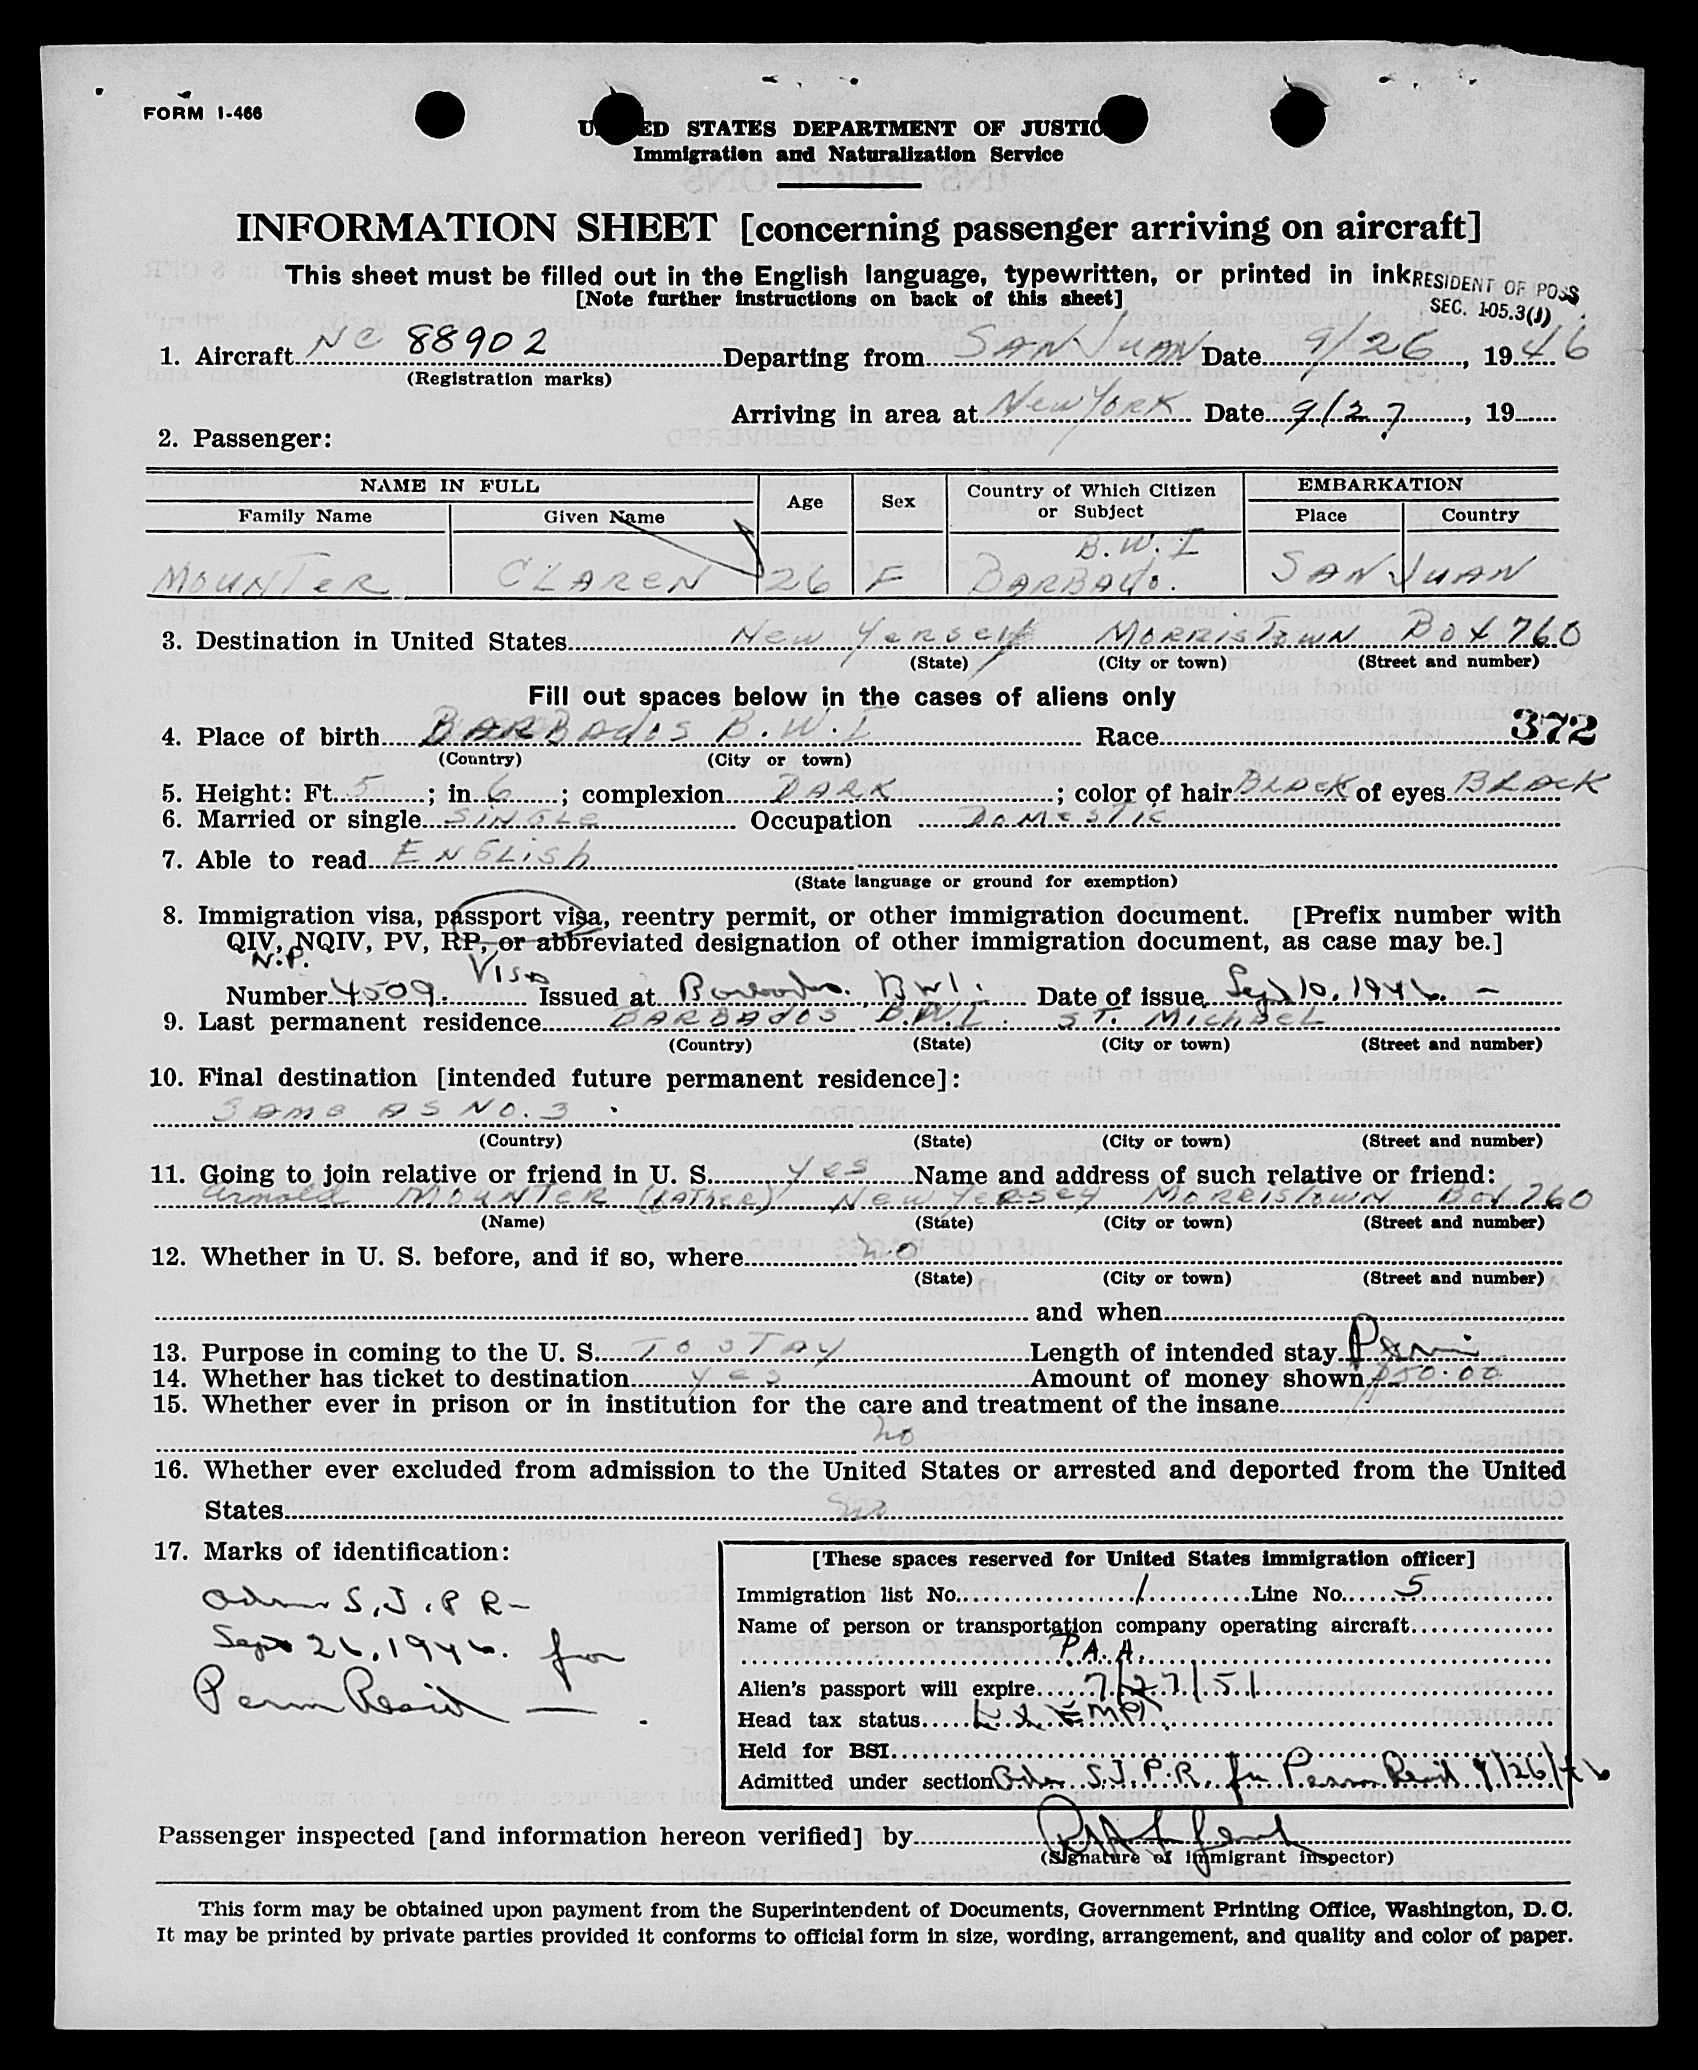 FORM I-466
UNITED STATES DEPARTMENT OF JUSTICE
Immigration and Naturalization Service
INFORMATION SHEET [concerning passenger arriving on aircraft]
This sheet must be filled out in the English language, typewritten, or printed in ink
RESIDENT OF POSS
SEC. 105.3(J)
[Note further instructions on back of this sheet]
1. Aircraft NC 88902 Departing from SAN JUAN Date 9/26, 1946
(Registration marks)
Arriving in area at New YORK Date 9/27, 19
2. Passenger:
NAME IN FULL Age Sex Country of Which Citizen or Subject EMBARKATION
Family Name Given Name Place Country
B.W.I
MOUNTER CLAREN 26 F BARBADO. SAN JUAN
3. Destination in United States New Yersey MORRISTOWN BOX 760
(State) (City or town) (Street and number)
Fill out spaces below in the cases of aliens only
4. Place of birth BARBADOS B.W.I Race 372
(Country) (City or town)
5. Height: Ft. 5; in. 6; complexion DARK; color of hair BLACK of eyes BLACK
6. Married or single SINGLE Occupation DOMESTIC
7. Able to read ENGLISh
(State language or ground for exemption)
8. Immigration visa, passport visa, reentry permit, or other immigration document. [Prefix number with
QIV, NQIV, PV, RP, or abbreviated designation of other immigration document, as case may be.]
N.P. Visa
Number 4509. Issued at Barbados. BWI. Date of issue Sept 10, 1946. -
9. Last permanent residence BARBADOS B.W.I. ST. MICHAEL
(Country) (State) (City or town) (Street and number)
10. Final destination [intended future permanent residece]:
SAME AS NO. 3
(Country) (State) (City or town) (Street and number)
11. Going to join relative or friend in U. S. yes Name and address of such relative or friend:
Arnold MOUNTER (FATHER) New Yersey MORRISTOWN BOX 760
(Name) (State) (City or town) (Street and number)
12. Whether in U. S. before, and if so, where no
(State) (City or town) (Street and number)
and when
13. Purpose in coming to the U. S. TO STAY Length of intended stay Perm
14. Whether has ticket to destination yes Amount of money shown $50.00
15. Whether ever in prison or in institution for the care and treatment of the insane
no
16. Whether ever excluded from admission to the United States or arrested and deported from the United
States
17. Marks of identification:
Adm S.J.P.R-
Sept 26, 1946. for
Perm Resid -
[These spaces reserved for United States immigration officer]
Immigration list No. 1 Line No. 5
Name of person or transportation company operating aircraft
P.A.A.
Alien's passport will expire 7/27/51
Head tax status EXEMPT
Held for BSI
Admitted under section Adm. S.J.P.R. for Perm Resid 9/26/46
Passenger inspected [and information hereon verified] by
(Signature of immigrant inspector)
This form may be obtained upon payment from the Superintendent of Documents, Government Printing Office, Washington, D.C.
It may be printed by private parties provided it conforms to official form in size, wording, arrangement, and quality and color of paper.